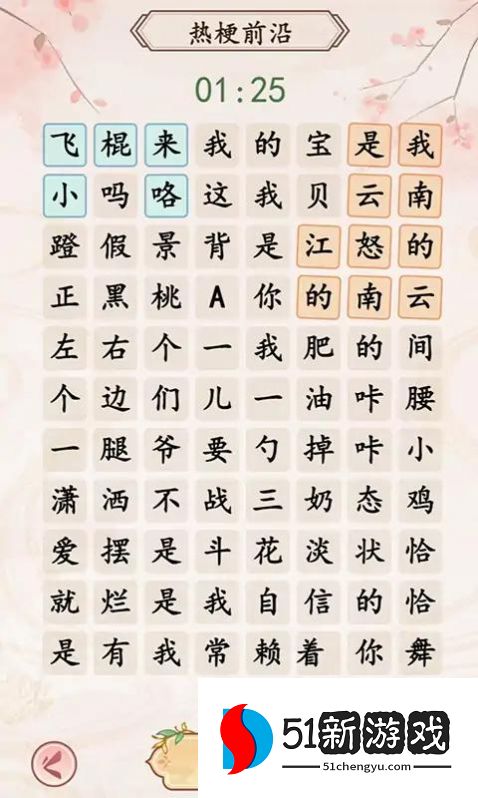 热梗前沿
01:25
飞棍来我的宝是我
小吗咯这我贝云南
蹬假景背是江怒的
正黑桃A你的南云
左右个一我肥的间
个边们儿一油咔腰
一腿爷要勺掉咔小
潇洒不战三奶态鸡
爱摆是斗花淡状恰
就烂是我自信的恰
是有我常赖着你舞
51新游戏
51chengyu.com